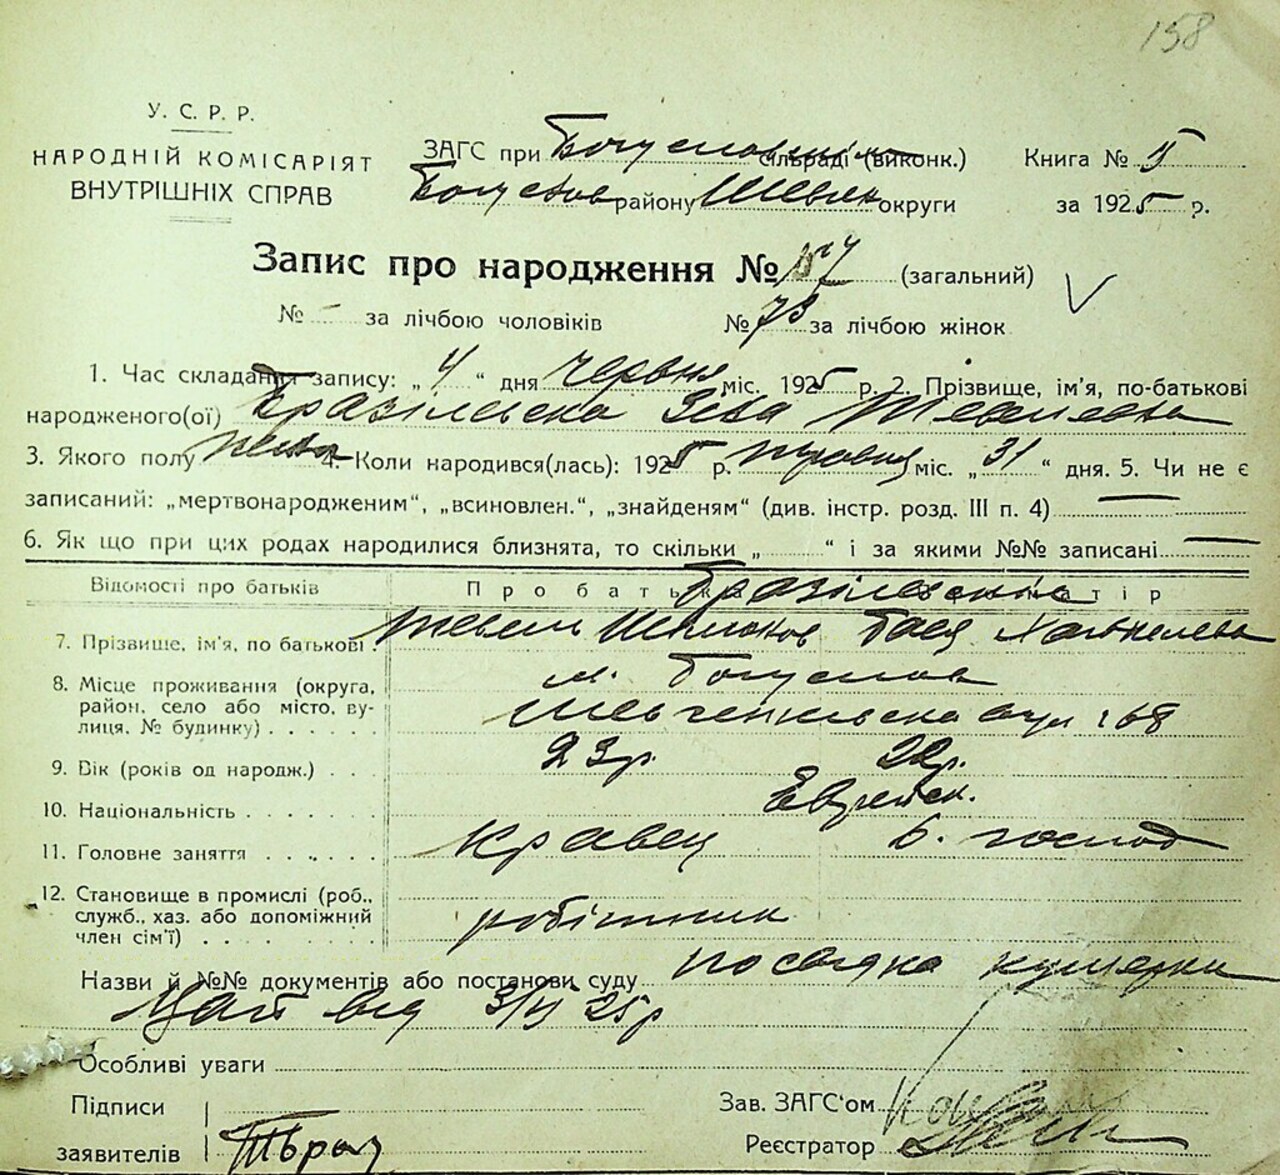 158
У. С. Р. Р.
НАРОДНІЙ КОМІСАРІЯТ
ВНУТРІШНІХ СПРАВ
ЗАГС при Богуславськ сільраді (виконк.)
Богуслав району Шевчен округи
Книга №
за 1925 р.
Запис про народження № (загальний)
№ - за лічбою чоловіків № 73 за лічбою жінок
1. Час складання запису: „4“ дня червня міс. 1925 р. 2. Прізвище, ім'я, по-батькові
народженого(ої) Бразілевська
3. Якого полу 4. Коли народився(лась): 1925 р. травня міс. „31“ дня. 5. Чи не є
записаний: „мертвонародженим“, „всиновлен.“, „знайденям“ (див. інстр. розд. III п. 4)
6. Як що при цих родах народилися близнята, то скільки „ “ і за якими №№ записані
Відомості про батьків
Про батьк матір
Бразілевські
7. Прізвище, ім'я, по батькові Бася
8. Місце проживання (округа, район, село або місто, вулиця, № будинку)
м. Богуслав
Шевченківська вул 168
9. Вік (років од народж.) 23р. 22р.
10. Національність Еврейськ.
11. Головне заняття кравец б. господ
12. Становище в промислі (роб., служб., хаз. або допоміжний член сім'ї) робітник
Назви й №№ документів або постанови суду посвідка кушерки
від 3/VI 25р
Особливі уваги
Підписи
заявителів
Зав. ЗАГС'ом
Реєстратор